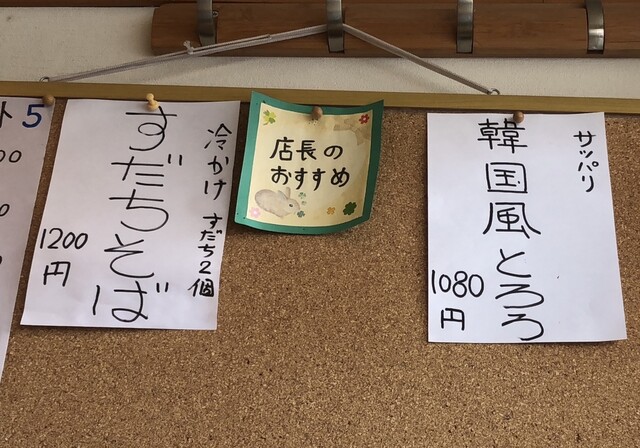 ト5
冷かけ すだち2個
すだちそば
1200
円
店長の
おすすめ
サッパリ
韓国風とろろ
1080
円